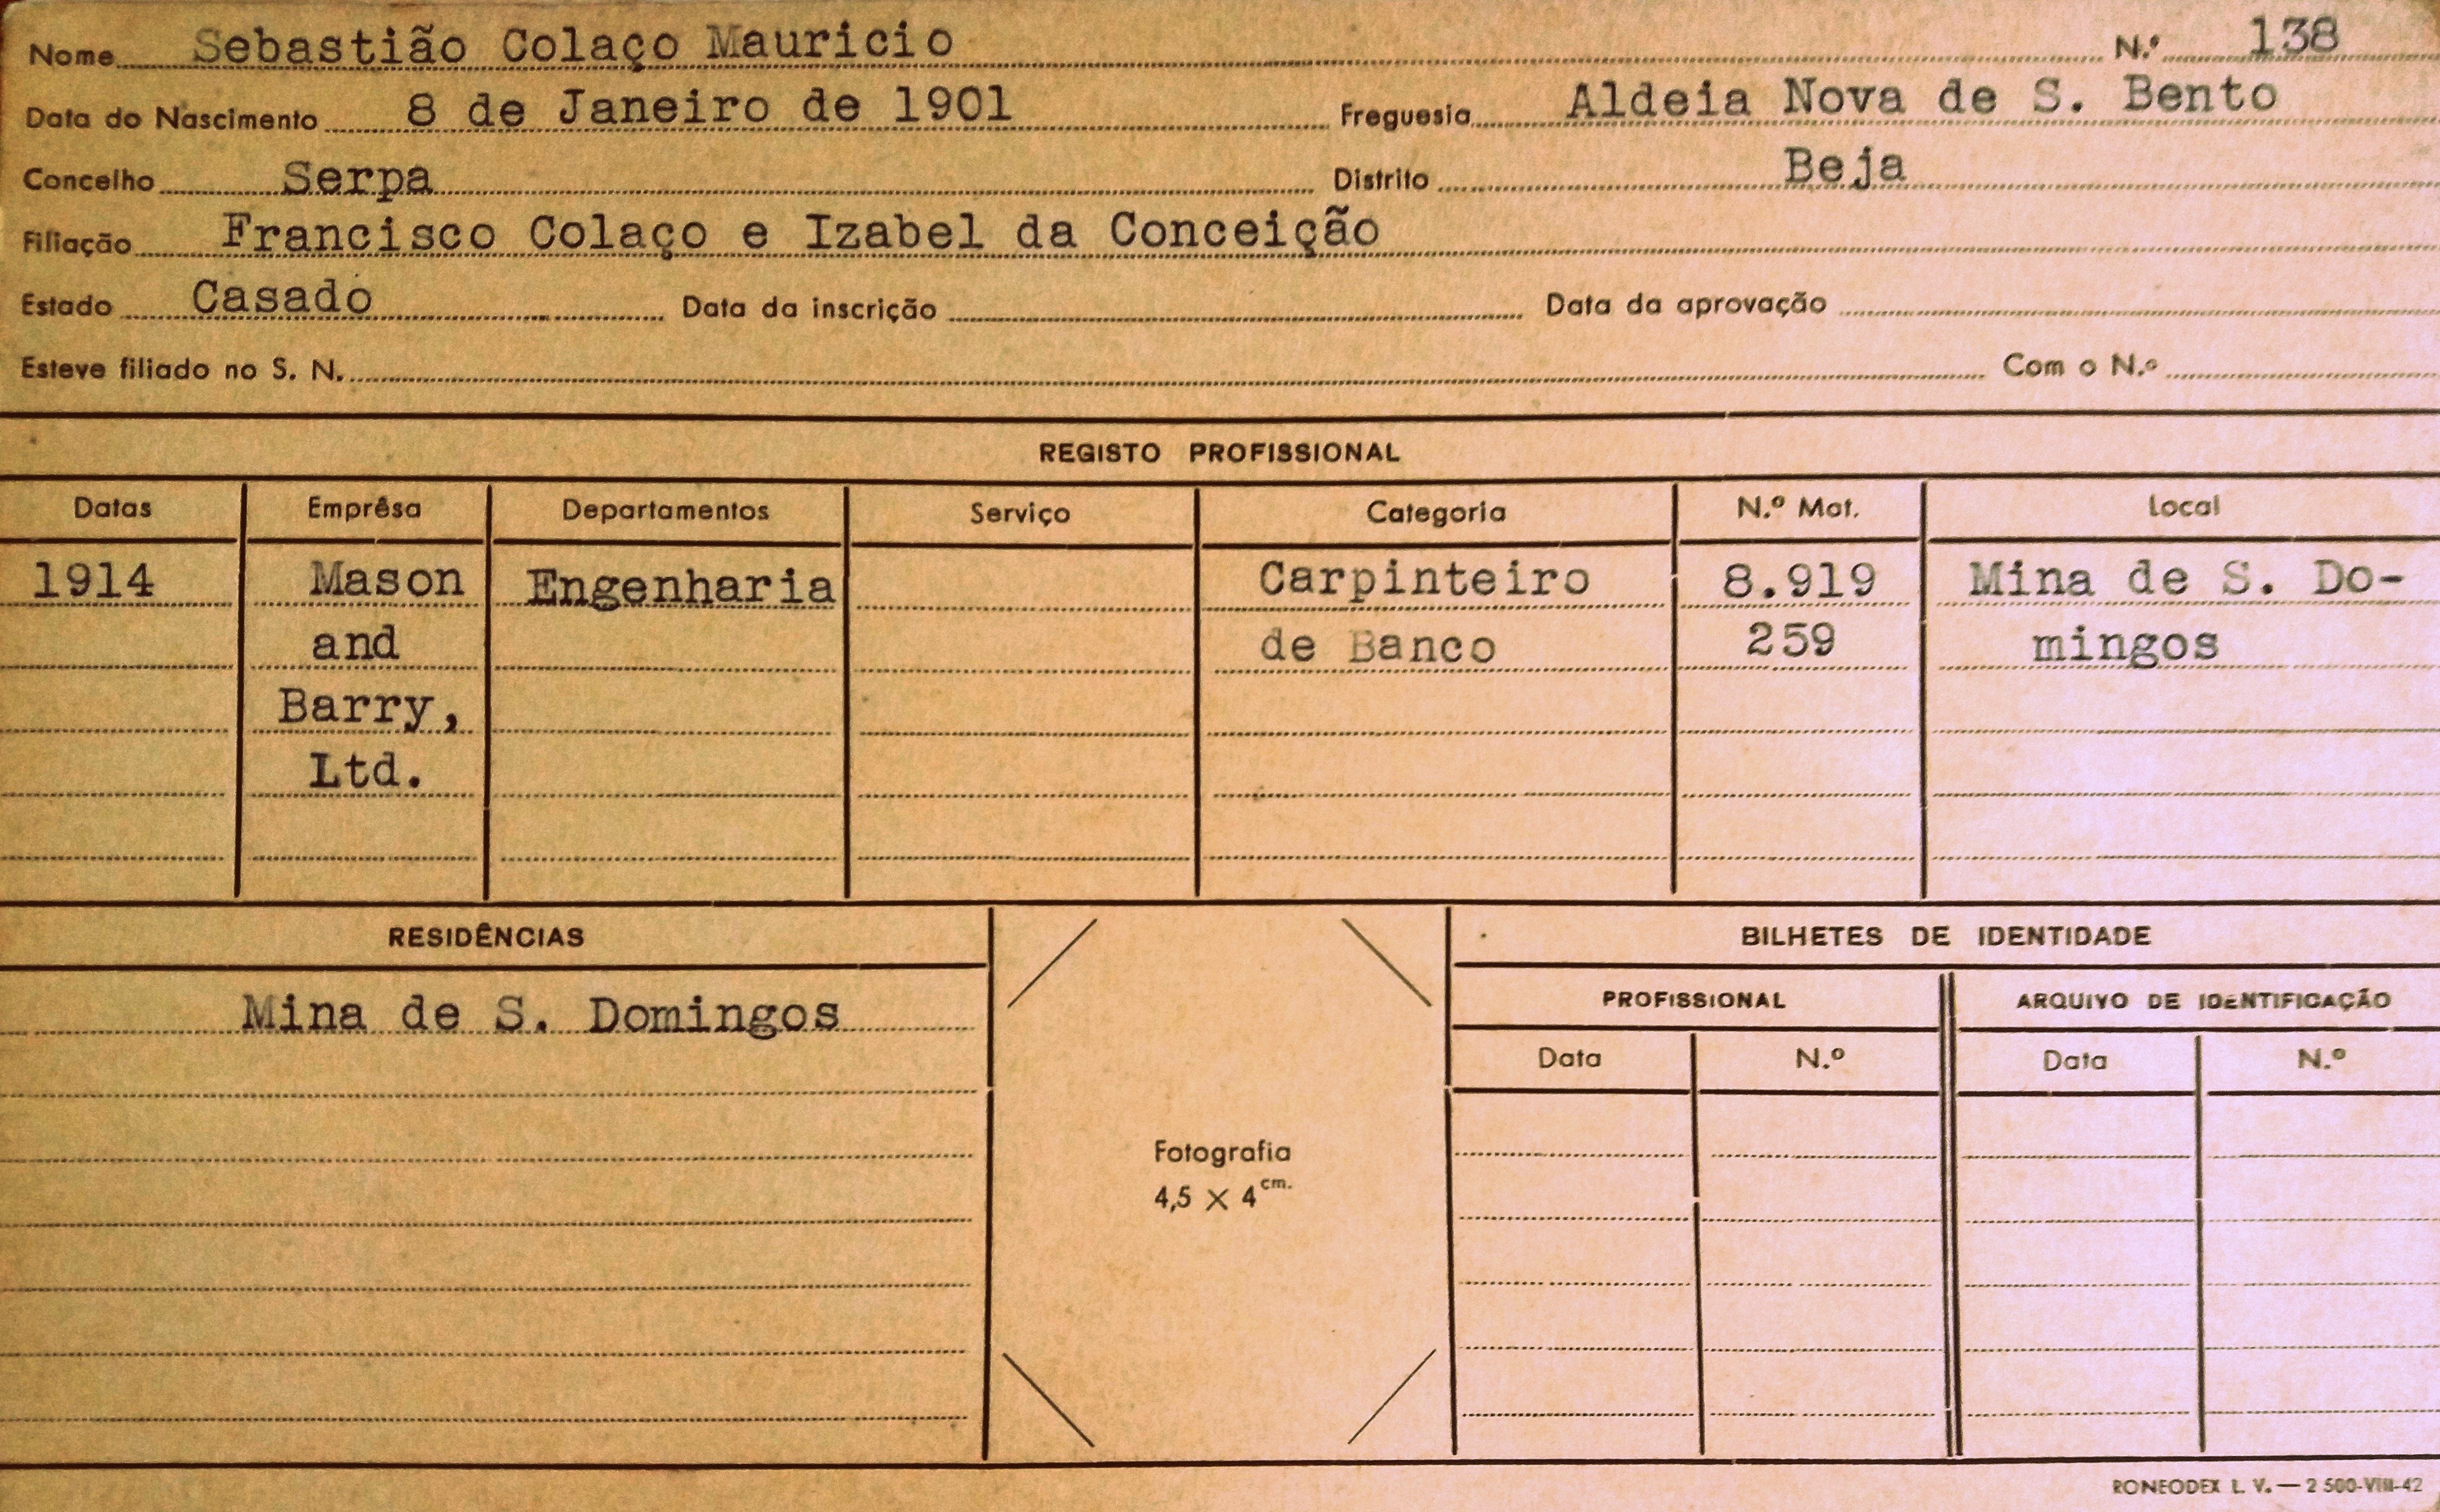 Nome Sebastião Colaço Mauricio N.º 138
Data do Nascimento 8 de Janeiro de 1901 Freguesia Aldeia Nova de S. Bento
Concelho Serpa Distrito Beja
Filiação Francisco Colaço e Izabel da Conceição
Estado Casado Data da inscrição Data da aprovação
Esteve filiado no S. N. Com o N.º
REGISTO PROFISSIONAL
Datas Emprêsa Departamentos Serviço Categoria N.º Mat. Local
1914 Mason Engenharia Carpinteiro 8.919 Mina de S. Do-
and de Banco 259 mingos
Barry,
Ltd.
RESIDÊNCIAS BILHETES DE IDENTIDADE
PROFISSIONAL ARQUIVO DE IDENTIFICAÇÃO
Mina de S. Domingos
Data N.º Data N.º
Fotografia
4,5 × 4 cm.
RONEODEX L. V. — 2 500-VIII-42